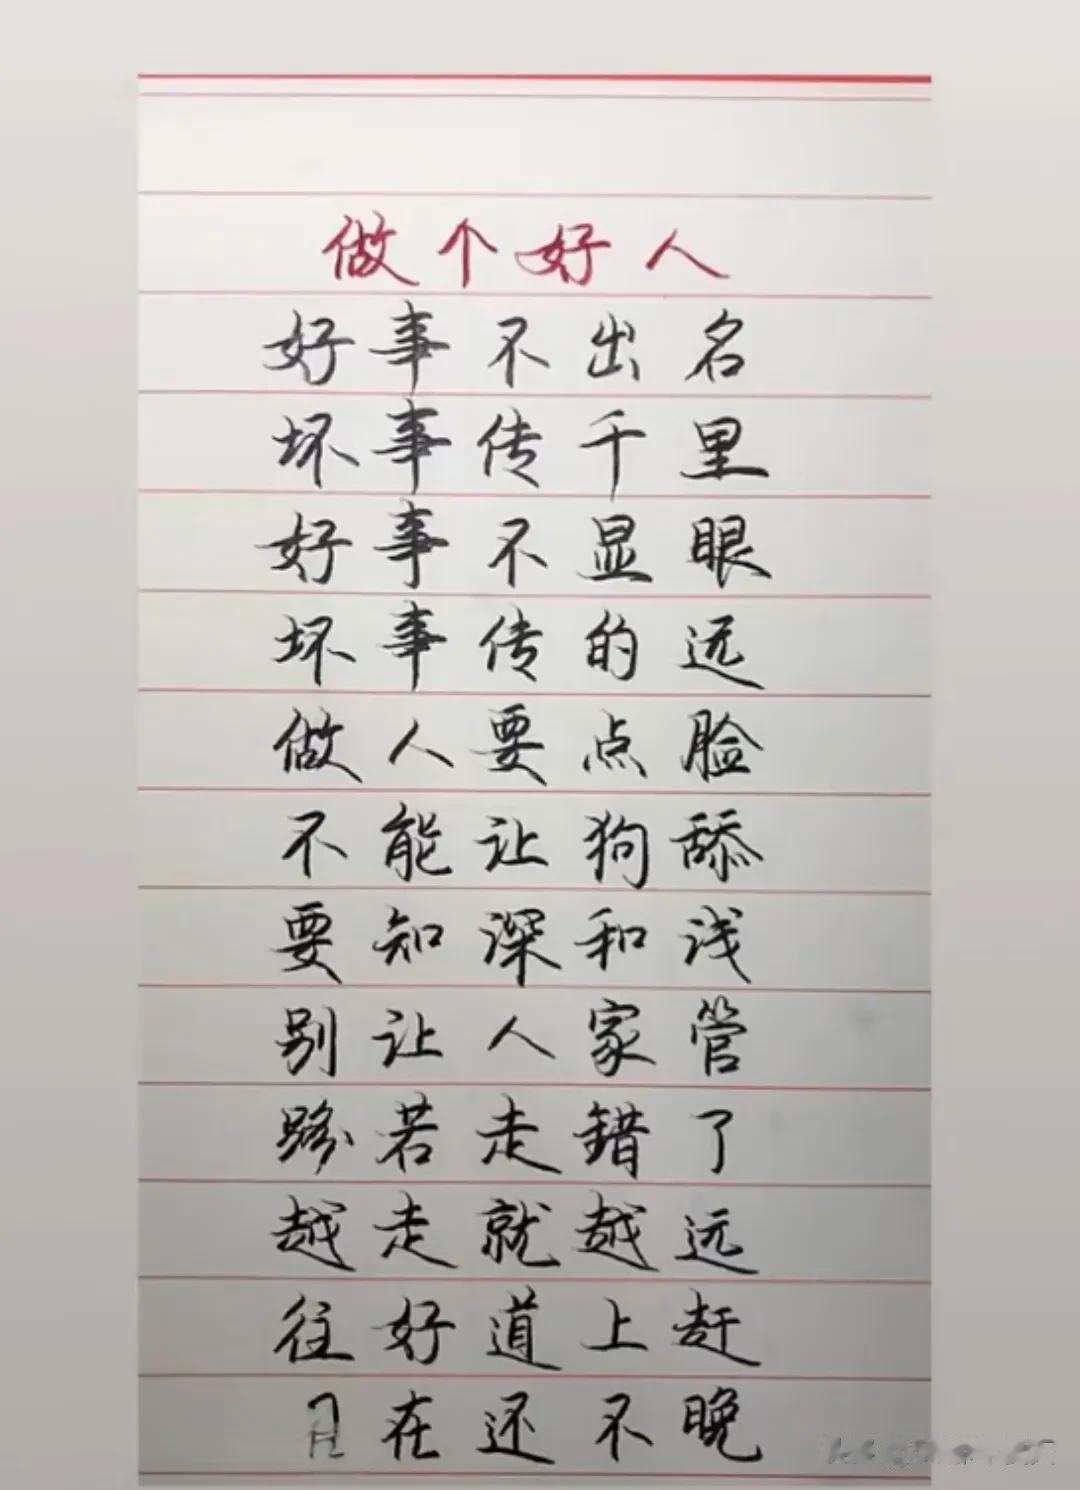 做个好人
好事不出名
坏事传千里
好事不显眼
坏事传的远
做人要点脸
不能让狗舔
要知深和浅
别让人家管
路若走错了
越走就越远
往好道上赶
在还不晚